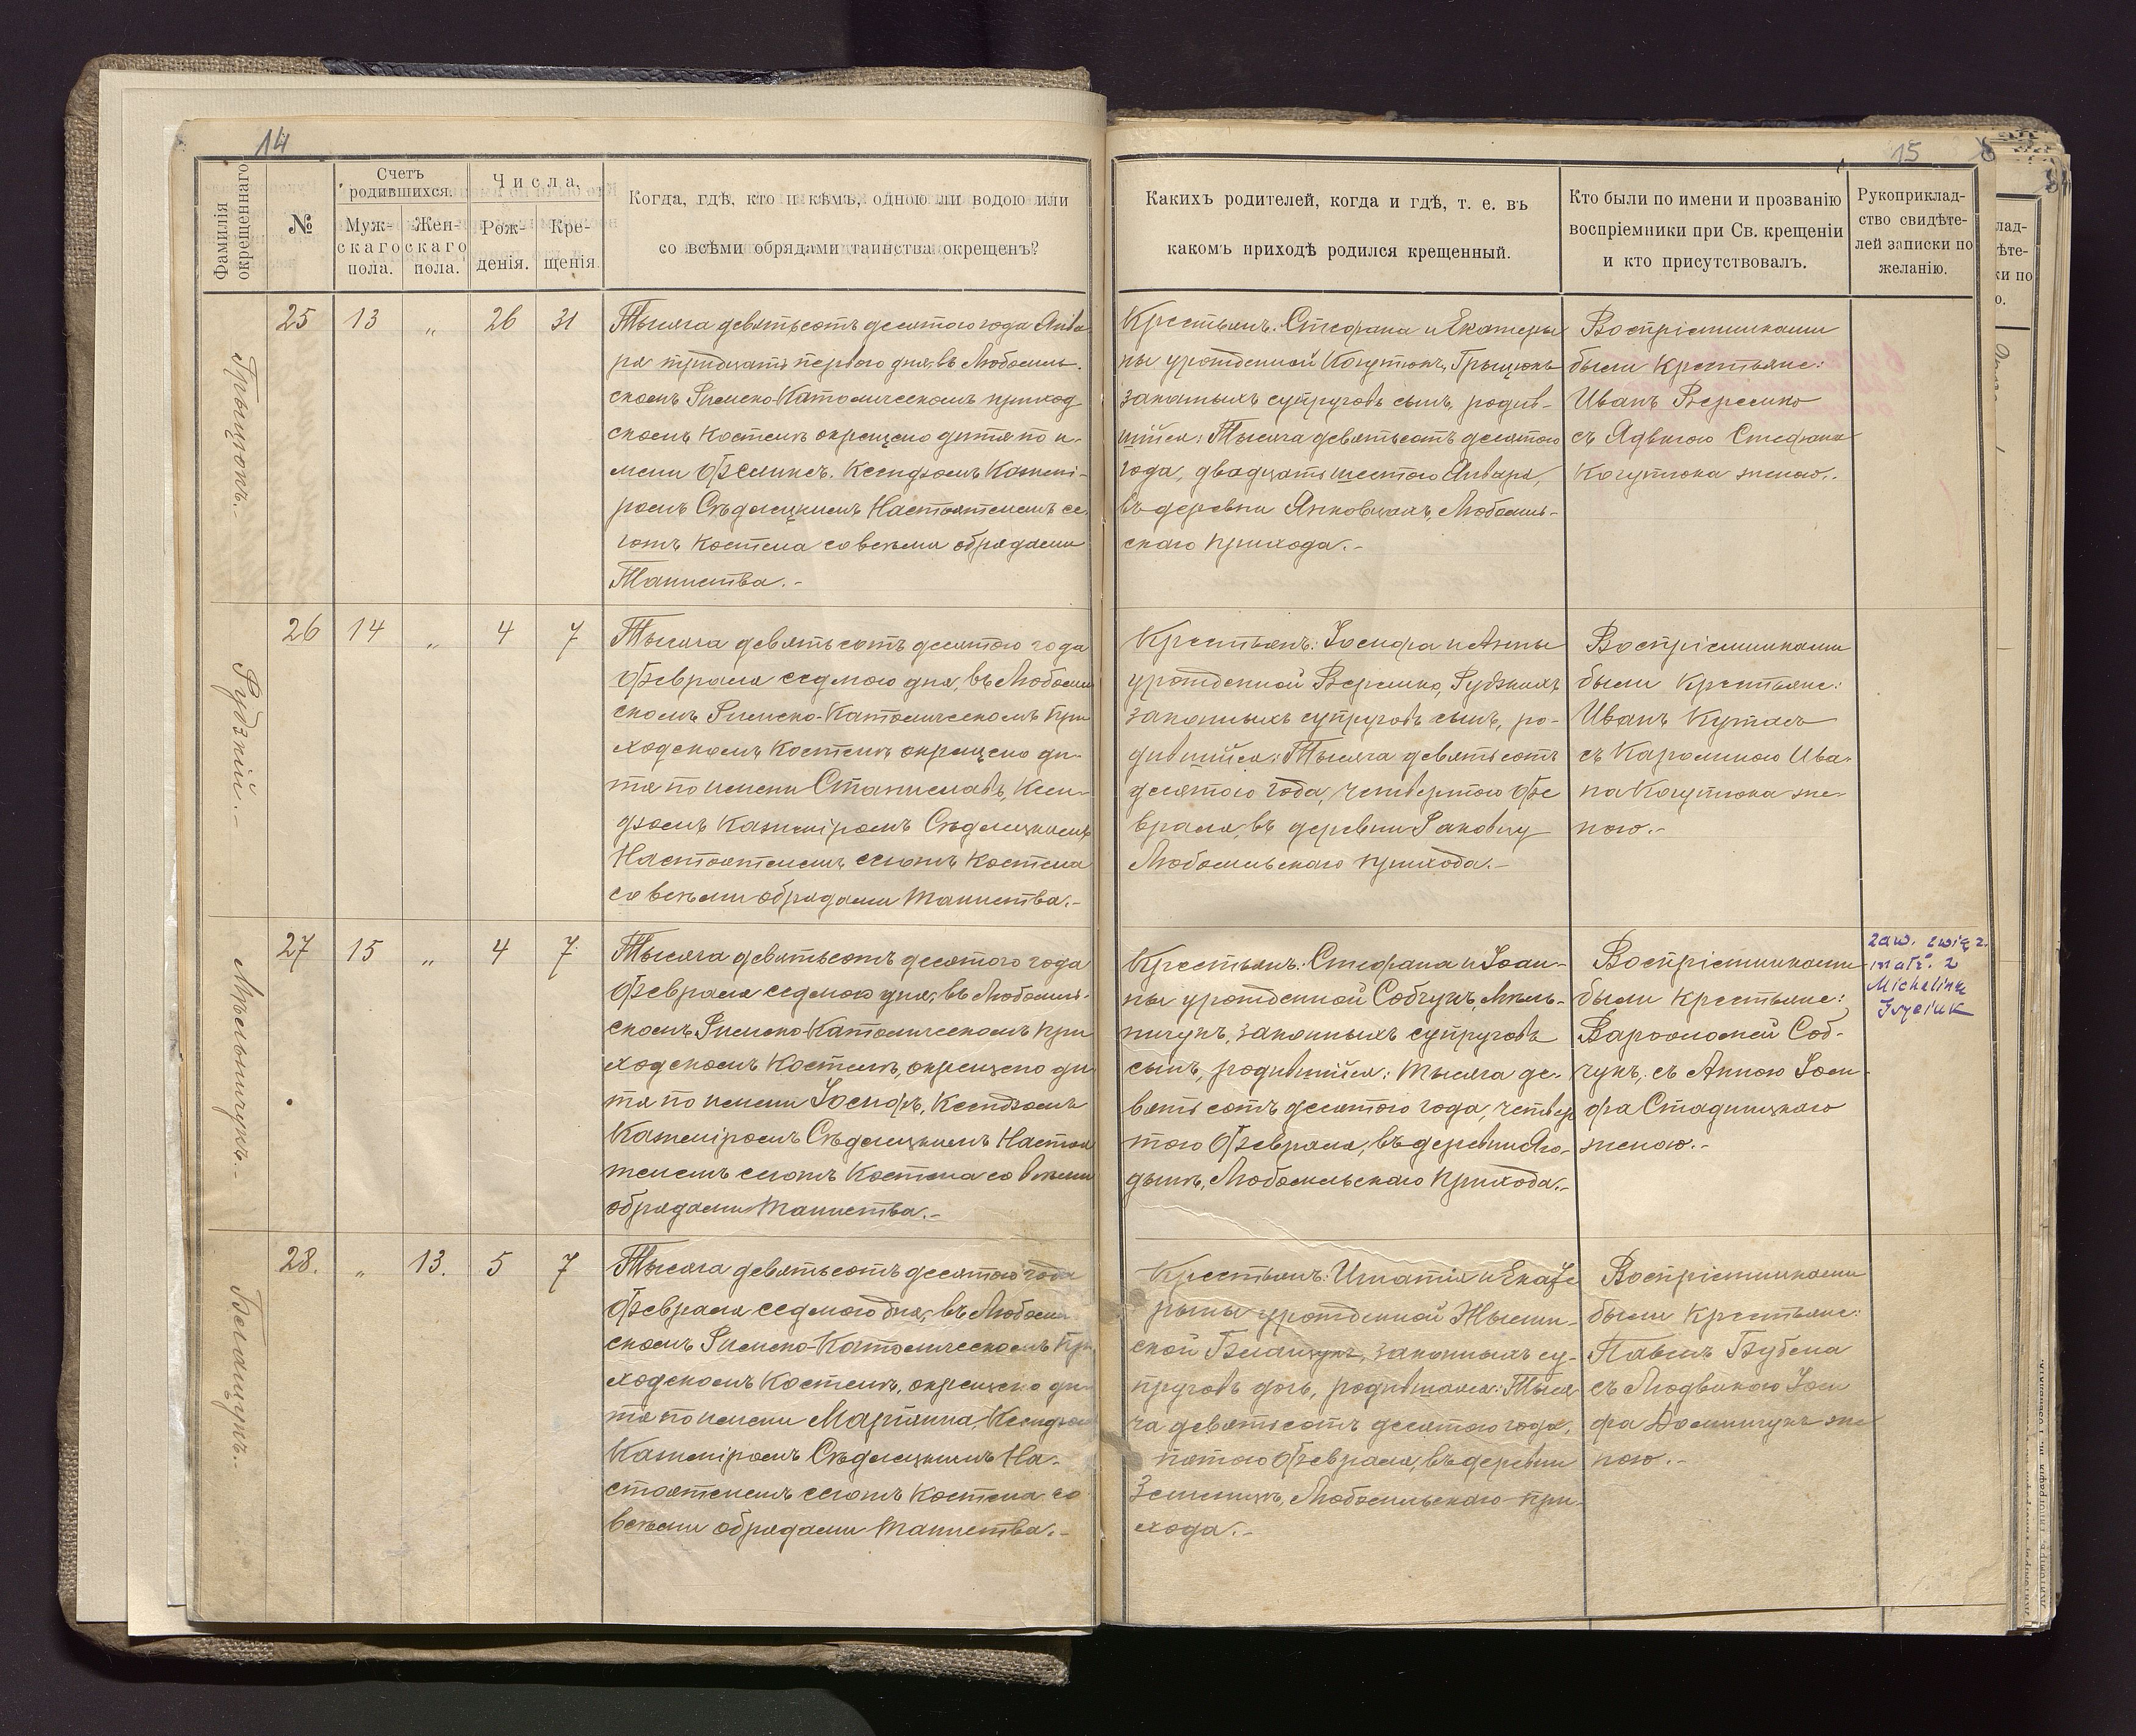 14
Фамилія окрещеннаго
№
Счетъ родившихся.
Муж-
скаго
пола.
Жен-
скаго
пола.
Числа,
Рож-
денія.
Кре-
щенія.
Когда, гдѣ, кто и кѣмъ, одною ли водою или
со всѣми обрядами таинства окрещенъ?
Грыцюкъ.
25 13 „ 26 31
Тысяча девятьсотъ десятого года Янва
ря тридцать первого дня, въ Любомль.
скомъ Римско-Католическомъ приход
скомъ Костелѣ окрещено дитя по и-
мени Феликсъ. Ксендзомъ Казимі-
ромъ Сѣдлецкимъ Настоятелемъ се
готъ Костела со всѣми обрядами
Таинства.-
Рудзкій.-
26 14 „ 4 7
Тысяча девятьсотъ десятого года
Февраля седмого дня, въ Любомль
скомъ Римско-Католическомъ При
ходскомъ Костелѣ окрещено ди-
тя по имени Станиславъ, Ксен-
дзомъ Казиміромъ Сѣдлецкимъ
Настоятелемъ сеготъ Костела
со всѣми обрядами Таинства.-
Мѣльничукъ.-
27 15 „ 4 7.
Тысяча девятьсотъ десятого года
Февраля седмого дня, въ Любомль-
скомъ Римско-Католическомъ При
ходскомъ Костелѣ, окрещено ди
тя по имени Іосифъ, Ксендзомъ
Казиміромъ Сѣдлецкимъ Настоя
телемъ сеготъ Костела со всѣми
обрядами Таинства.-
28. „ 13. 5 7
Тысяча девятьсотъ десятого года
Февраля седмого дня, въ Любомль
скомъ Римско-Католическомъ При
ходскомъ Костелѣ, окрещено ди-
тя по имени Маріанна, Ксендзом
Казиміромъ Сѣдлецкимъ На-
стоятелемъ сеготъ Костела со
всѣми обрядами Таинства.-
15
Какихъ родителей, когда и гдѣ, т. е. въ
какомъ приходѣ родился крещенный.
Кто были по имени и прозванію
воспріемники при Св. крещеніи
и кто присутствовалъ.
Рукоприклад-
ство свидѣте-
лей записки по
желанію.
Крестьянъ: Стефана и Екатери
ны урожденной Когутюкъ, Грыцюкъ
законныхъ супруговъ сынъ, родив-
шійся: Тысяча девятьсотъ десятого
года, двадцать шестого Января,
въ деревни Янковцахъ, Любомль-
скаго прихода.-
Воспріемниками
были Крестьяне:
Иванъ Веремко
съ Ядвигою Стефана
Когутюка женою.
Крестьянъ: Іосифа и Анны
урожденной Веремко, Рудзкихъ
законныхъ супруговъ сынъ, ро-
дившійся: Тысяча девятьсотъ
десятого года, четвертого Фе
враля, въ деревни Раковцу
Любомльскаго прихода.-
Воспріемниками
были Крестьяне:
Иванъ
съ Каролиною Ива-
на Когутюка же-
ною.-
Крестьянъ: Стефана и Іоан-
ны урожденной Собчукъ, Мѣль-
ничукъ, законныхъ супруговъ
сынъ, родившійся: Тысяча де-
вятьсотъ десятого года, четвер
того Февраля, въ деревни Яго-
дынъ, Любомльскаго Прихода.-
Воспріемниками
были Крестьяне:
Варфоломей Соб-
чукъ, съ Анною Іоси-
фа Стадницкаго
женою.-
zaw. związ.
małż. z
Michaliną
Крестьянъ: Игнатія и Екате
рыны урожденной
законныхъ су-
пруговъ дочь, родившаяся: Тыся
ча девятьсотъ десятого года,
пятого Февраля, въ деревни
Землицѣ, Любомльскаго При-
хода.-
Воспріемниками
были Крестьяне:
Павелъ Бубела
съ Людвикою Іоси
фа Доминчукъ же
ною.-